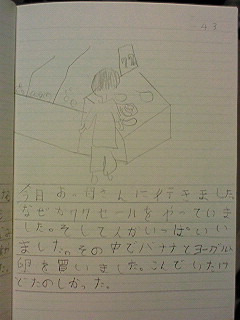 43
99
今日お母さんに行きました。
なぜか99セールをやっていま
した。そして人がいっぱいい
ました。その中でバナナとヨーグル
卵を買いました。こんでいたけ
どたのしかった。